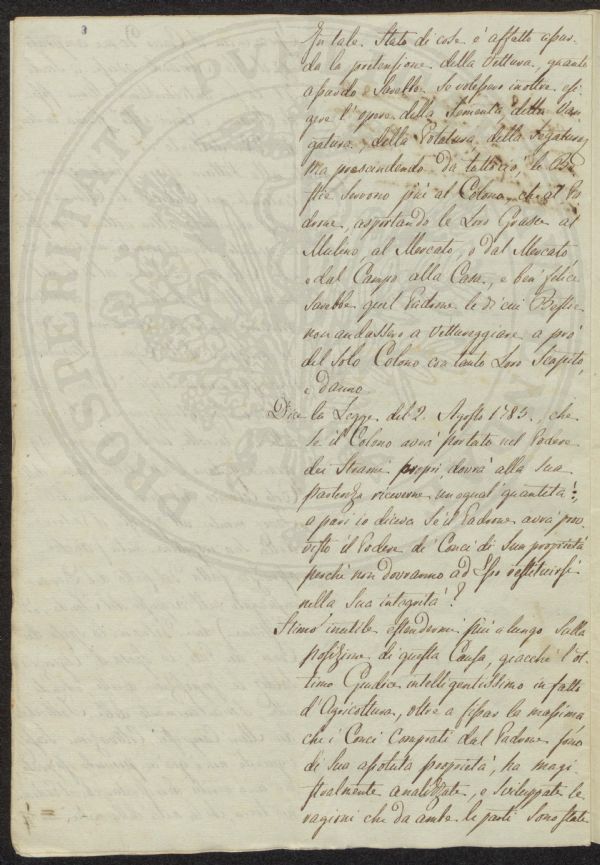 In tale Stato di cose è affatto assur-
da la pretensione della Vettura, quanto
assurdo Sarebbe Se volessero inoltre esi
gere l'opera della Sementa, della Van-
gatura, della Potatura, della Segatura,
ma prescindendo da tutto ciò, le Be
stie Servono più al Colono, che al Pa
drone, asportando le Loro Grasce al
Mulino, al Mercato, o dal Mercato
o dal Campo alla Casa, e ben felice
Sarebbe quel Padrone le di cui Bestie
non andassero a Vettureggiare a prò
del Solo Colono con tanto Loro Scapito,
e danno
Dice la Legge del 2. Agosto 1785., che
Se il Colono avrà portato nel Podere
dei Strami propri, dovrà alla Sua
partenza riceverne un egual quantità:,
a pari io diceva Se il Padrone avrà pro-
visto il Podere di Conci di Sua proprietà
perché non dovranno ad Esso restituirsi
nella Sua integrità?
Stimo inutile estendermi più a lungo Sulla
posizione di questa Causa, giacchè l'ot
timo Giudice intelligentissimo in fatto
d'Agricoltura, oltre a fissar la massima
che i Conci Comprati dal Padrone Sono
di Sua assoluta proprietà, ha magi
stralmente analizzate, e Sviluppate le
ragioni che da ambe le parti Sono State
PROSPERITATI PVB